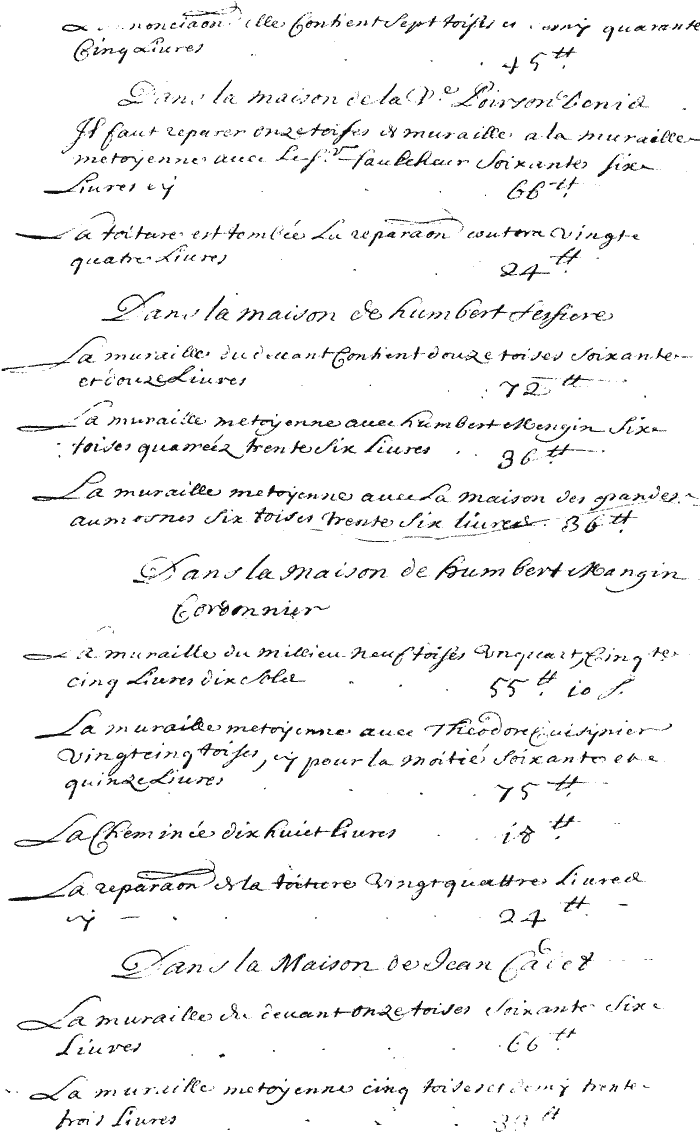 elle Contient sept toises et demy quarante
Cinq Livres
45 ₶
Dans la maison de la Ve Poirson Denis
Il faut reparer onze toises de muraille a la muraille
metoyenne avec Le Sr faulcheur Soixante six
Livres cy 66 ₶
La toiture est tombée La reparaon coutera vingte
quatre Livres 24 ₶
Dans la maison de humbert tessiere
La muraille du devant Contient douze toises soixante
et douze Livres 72 ₶
La muraille metoyenne avec humbert Mengin Six
toises quarréez trente Six Livres 36 ₶
La muraille metoyenne avec La maison des grandes
aumosnes six toises trente six livres 36 ₶
Dans la maison de humbert Mangin
Cordonnier
La muraille du millieu neuf toises Un quart, Cinqte
cinq Livres dix sols 55 ₶ 10 s.
La muraille metoyenne avec Theodore Cuisinier
Vingt cinq toises, cy pour la moitié soixante et
quinze Livres 75 ₶
La Cheminée dix huict livres 18 ₶
La reparaon de la toiture Vingt quattre Livres
cy 24 ₶
Dans la Maison de Jean Cadet
La muraille du devant onze toises Soixante Six
Liuvres 66 ₶
La muraille metoyenne cinq toises et demy trente
trois Livres 33 ₶